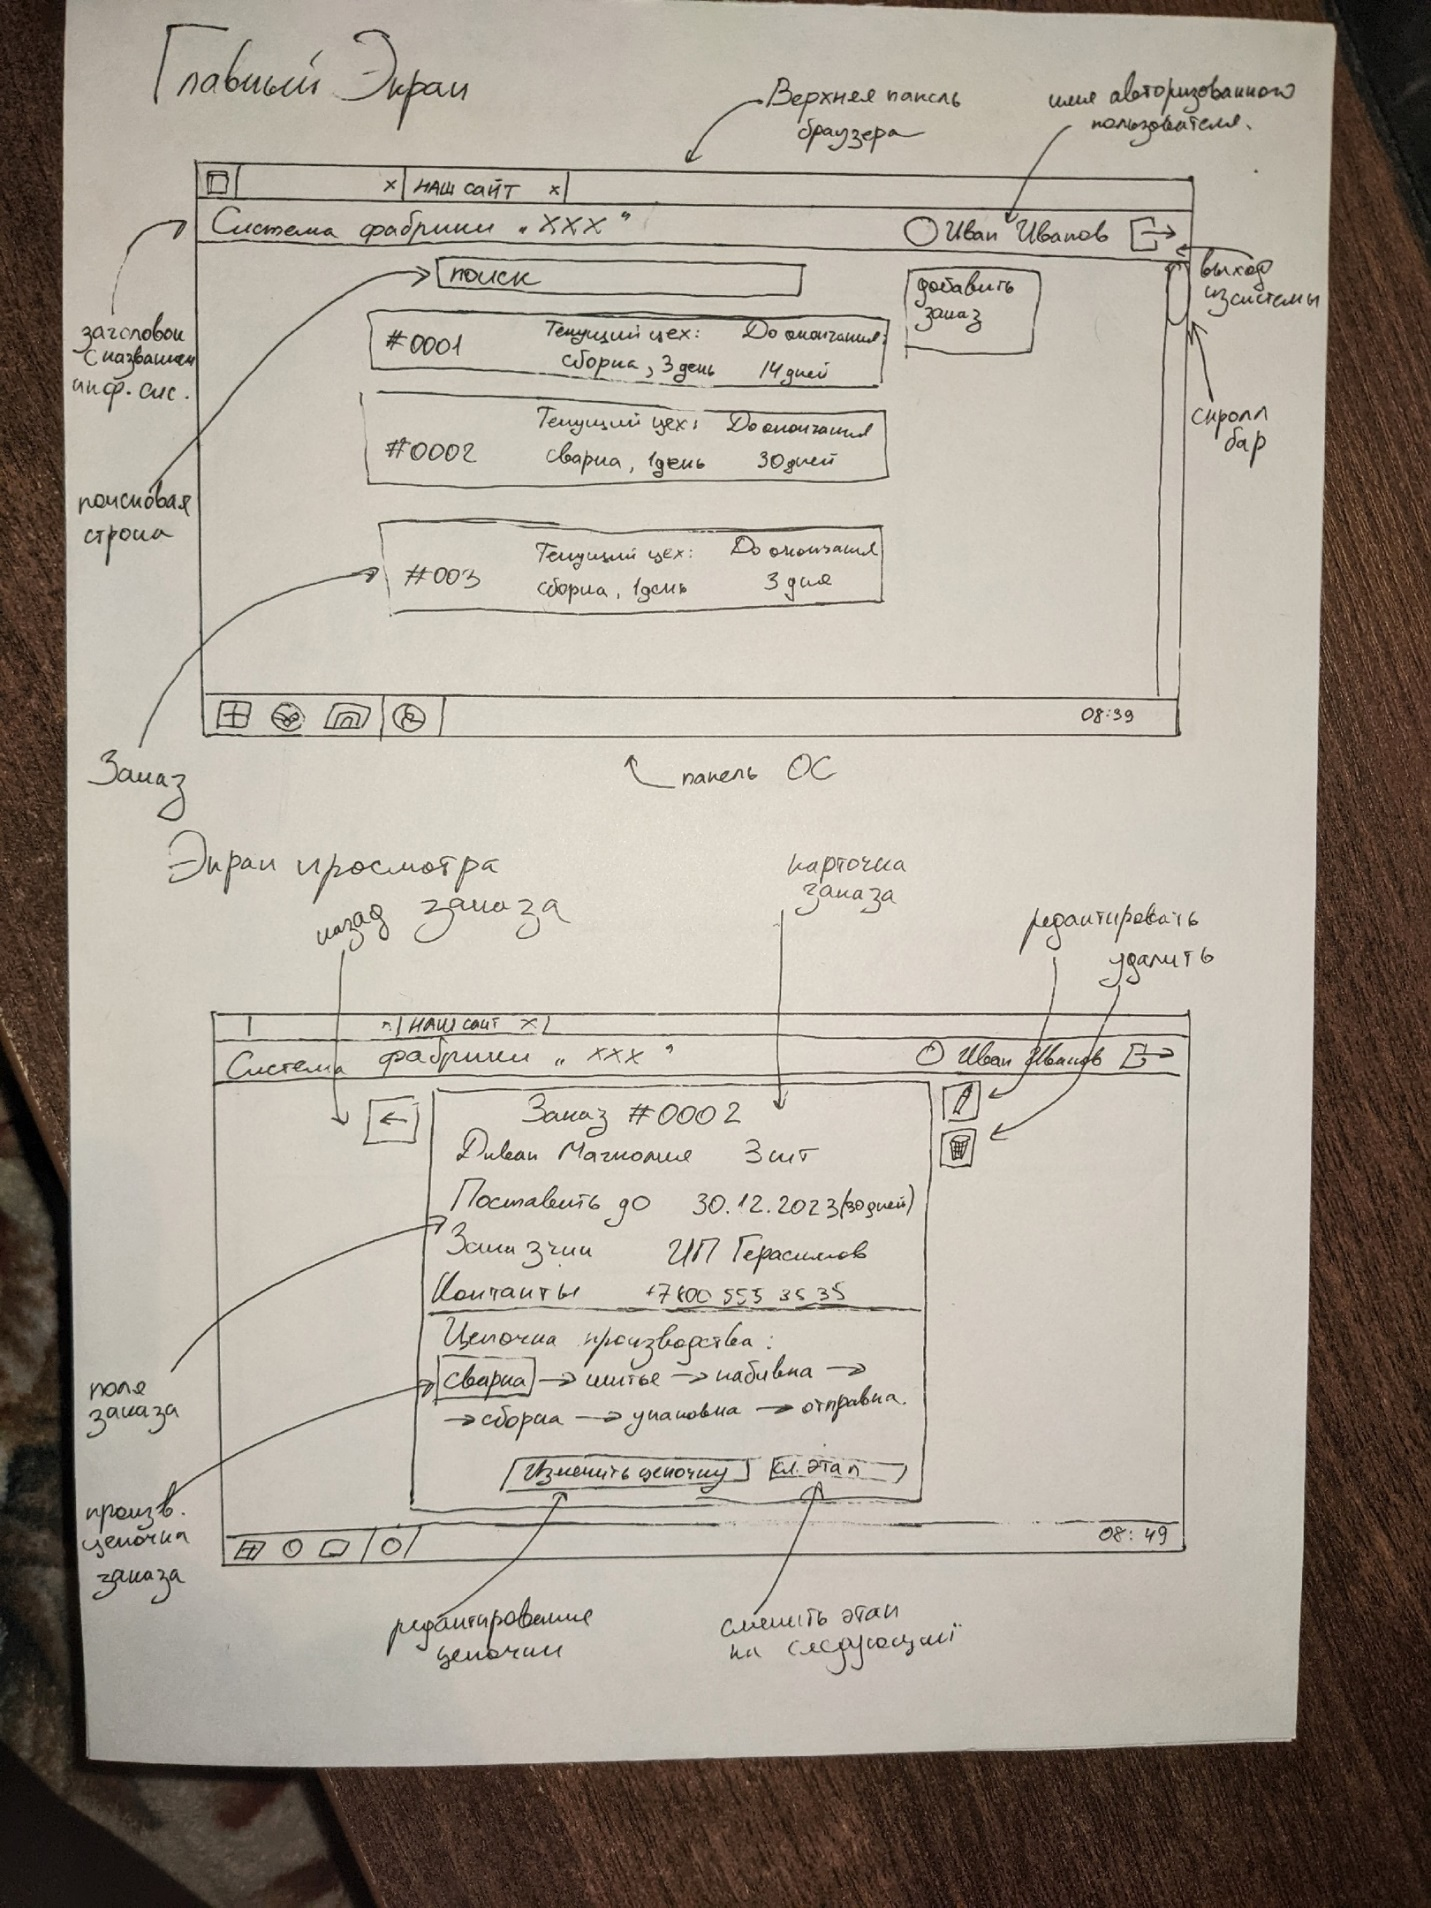 Главный Экран
Верхняя панель
браузера
имя авторизованного
пользователя.
x НАШ САЙТ x
Система фабрики „XXX“
Иван Иванов
выход
из системы
поиск
добавить
заказ
заголовок
с названием
инф. сис.
#0001
Текущий цех:
сборка, 3 день
До окончания:
14 дней
скролл
бар
#0002
Текущий цех:
сварка, 1 день
До окончания
30 дней
поисковая
строка
#003
Текущий цех:
сборка, 1 день
До окончания
3 дня
08:39
Заказ
панель ОС
Экран просмотра
заказа
назад
карточка
заказа
редактировать
удалить
НАШ САЙТ x
Система фабрики „XXX“
Иван Иванов
Заказ #0002
Диван Магнолия 3 шт
Поставить до 30.12.2023 (30 дней)
Заказчик ИП Герасимов
Контакты +7 800 555 35 35
Цепочка производства:
сварка → шитье → набивка →
→ сборка → упаковка → отправка.
Изменить цепочку
сл. этап
поля
заказа
произв.
цепочка
заказа
08:49
редактирование
цепочки
сменить этап
на следующий